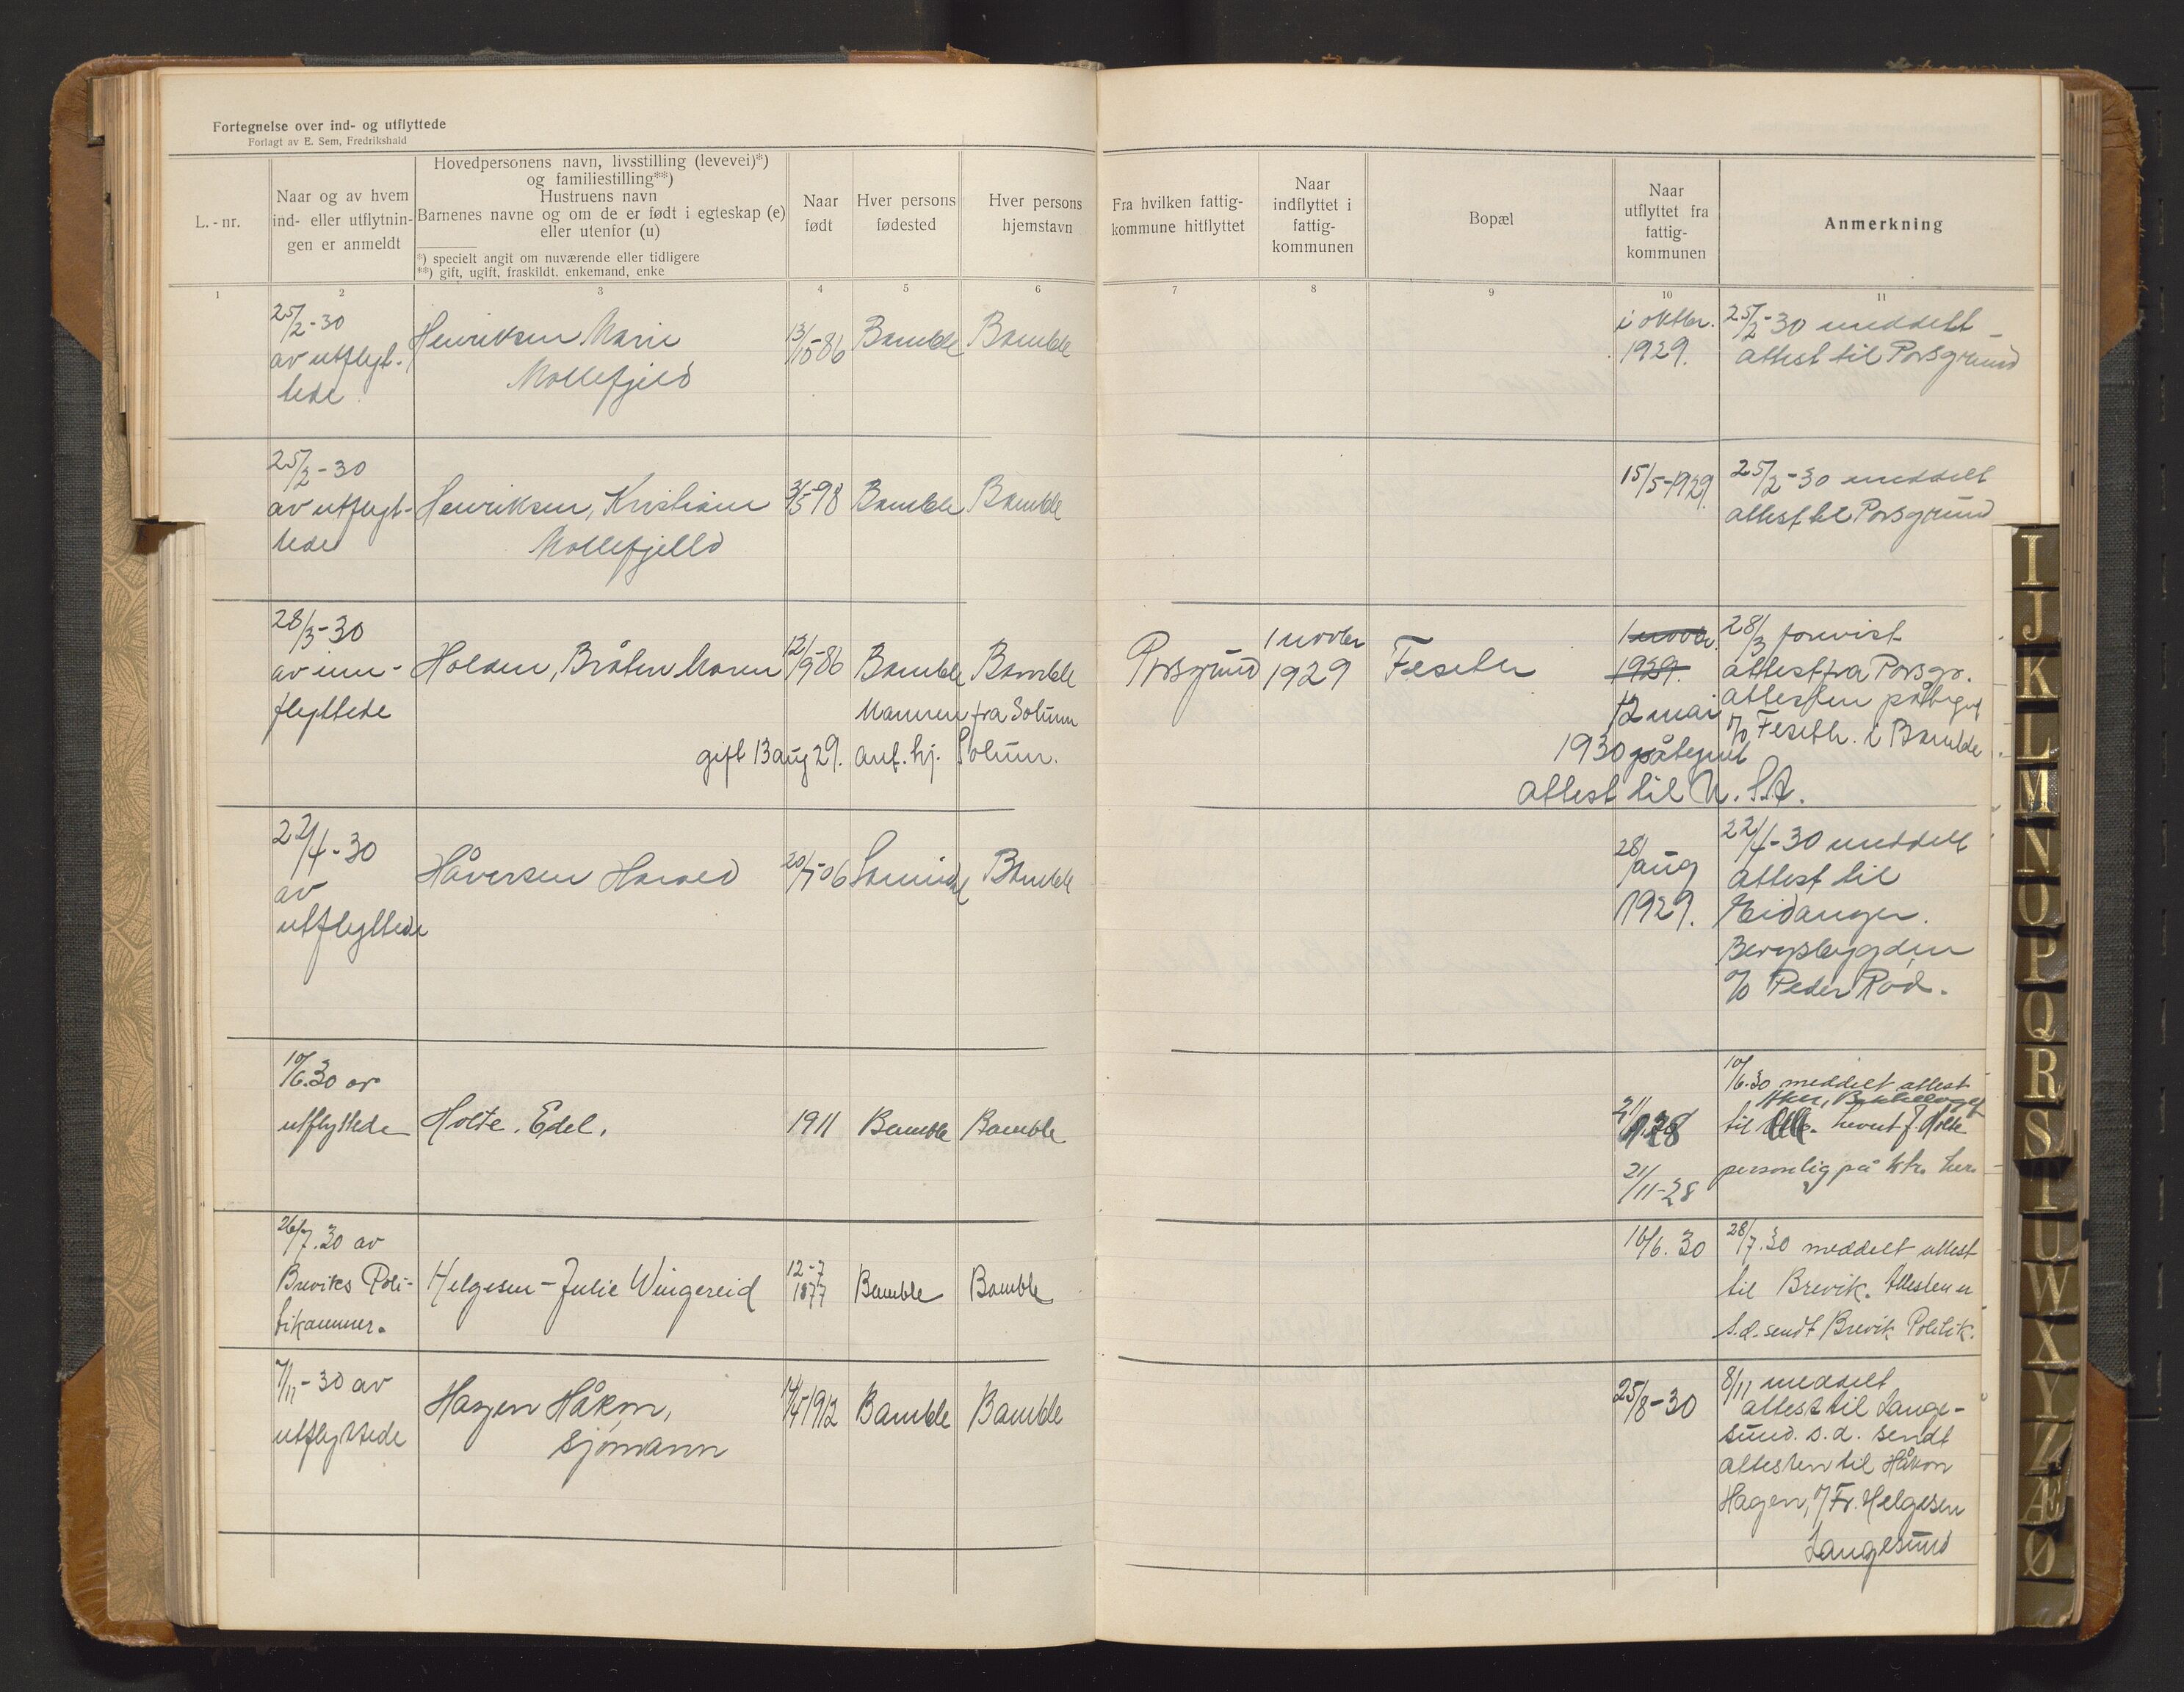 Fortegnelse over ind- og utflyttede
Forlagt av E. Sem, Fredrikshald
L.-nr.
Naar og av hvem
ind- eller utflytnin-
gen er anmeldt
Hovedpersonens navn, livsstilling (levevei)*)
og familiestilling**)
Hustruens navn
Barnenes navne og om de er født i egteskap (e)
eller utenfor (u)
*) specielt angit om nuværende eller tidligere
**) gift, ugift, fraskildt. enkemand, enke
Naar
født
Hver persons
fødested
Hver persons
hjemstavn
Fra hvilken fattig-
kommune hitflyttet
Naar
indflyttet i
fattig-
kommunen
Bopæl
Naar
utflyttet fra
fattig-
kommunen
Anmerkning
1 2 3 4 5 6 7 8 9 10 11
25/2-30
av utflyt-
tede
Henriksen Marie
Mollefjeld
13/10-86
Bamble
Bamble
i oktbr.
1929.
25/2-30 meddelt
attest til Porsgrund
25/2-30
av utflyt-
tede
Henriksen, Kristiane
Mollefjelld
98
Bamble
Bamble
15/5-1929.
25/2-30 meddelt
attest til Porsgrund
28/3-30
av inn-
flyttede
Holsen, Bråten Maren
12/9-86
Bamble
Bamble
Mannen fra Solum
gift 13 aug 29. ant. hj. Solum.
Porsgrund
1 novbr
1929
Feseter
1 novbr.
1929.
12 mai
1930 påtegnet
attest til U.S.A.
28/3 forevist
attest fra Porsgr.
attesten påtegnet
% Feseth. i Bamble
22/4-30
av
utflyttede
Håversen Harald
20/7-06
Sannidal
Bamble
28/
aug
1929.
22/4-30 meddelt
attest til
Eidanger.
Bergsbygden
% Peder Rød.
10/6.30 av
utflyttede
Holte. Edel.
1911
Bamble
Bamble
21/
21/11-28
10/6.30 meddelt attest
Aker, Bekkelaget
til hevet J. Holte
personlig på ktr. her.
26/7.30 av
Breviks Poli-
tikammer.
Helgesen - Julie Wingereid
12-7
1877
Bamble
Bamble
10/6. 30
28/7.30 meddelt attest
til Brevik. Attesten er
s.d. sendt Brevik Politik.
7/11-30 av
utflyttede
Hagen Håkon,
sjømann
14/4-1912
Bamble
Bamble
25/8-30
8/11 meddelt
attest til Lange-
sund. s.d. sendt
attesten til Håkon
Hagen, % Fr. Helgesen
Langesund
I
J
K
L
M
N
O
P
Q
R
S
T
U
W
X
Y
Z
Æ
Ø